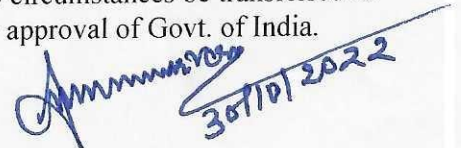 circumstances be transferred
approval of Govt. of India.
30/10/2022